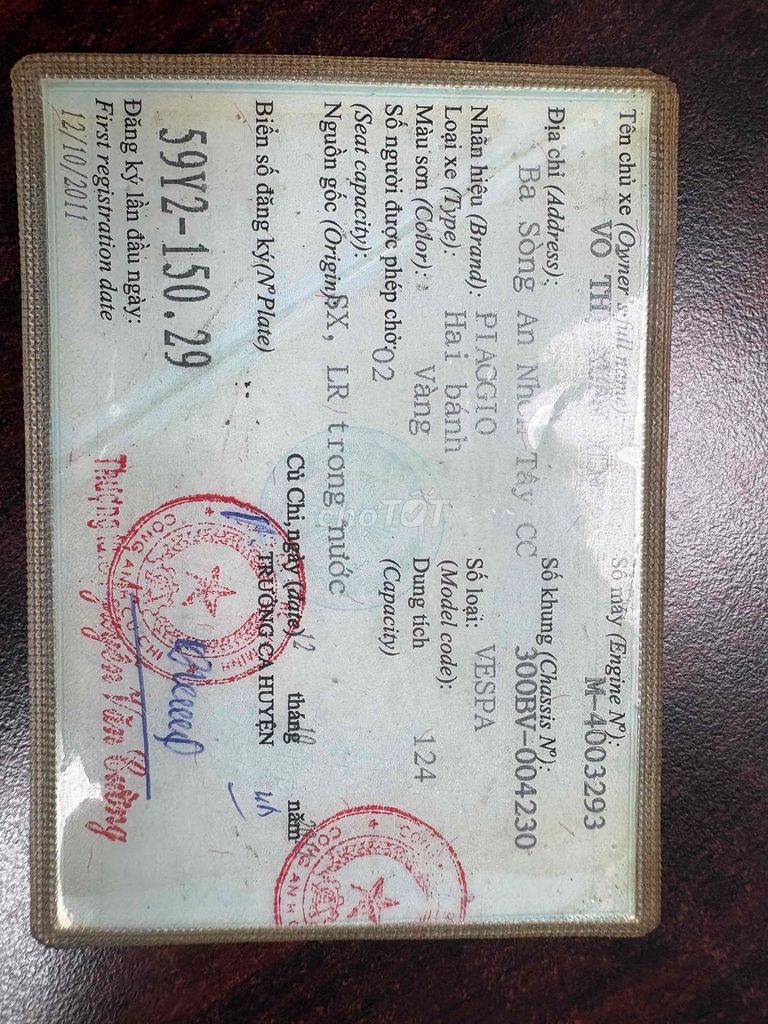 Tên chủ xe (Owner's full name): Số máy (Engine Nº):
VO THI XUÂN M-4003293
Địa chỉ (Address): Số khung (Chassis Nº):
Ba Sòng An Nhơn Tây CC 300BV-004230
Nhãn hiệu (Brand): PIAGGIO Số loại: VESPA
Loại xe (Type): Hai bánh (Model code):
Màu sơn (Color): Vàng Dung tích 124
Số người được phép chở: 02 (Capacity)
(Seat capacity):
Nguồn gốc (Origin) SX, LR trong nước
Củ Chi, ngày (date) 12 tháng 10 năm
Biển số đăng ký (Nº Plate) TRƯỞNG CA HUYỆN
59Y2-150.29
Đăng ký lần đầu ngày:
First registration date
12/10/2011
CÔNG AN H. CỦ CHI
CÔNG AN H
Chợ TỐT